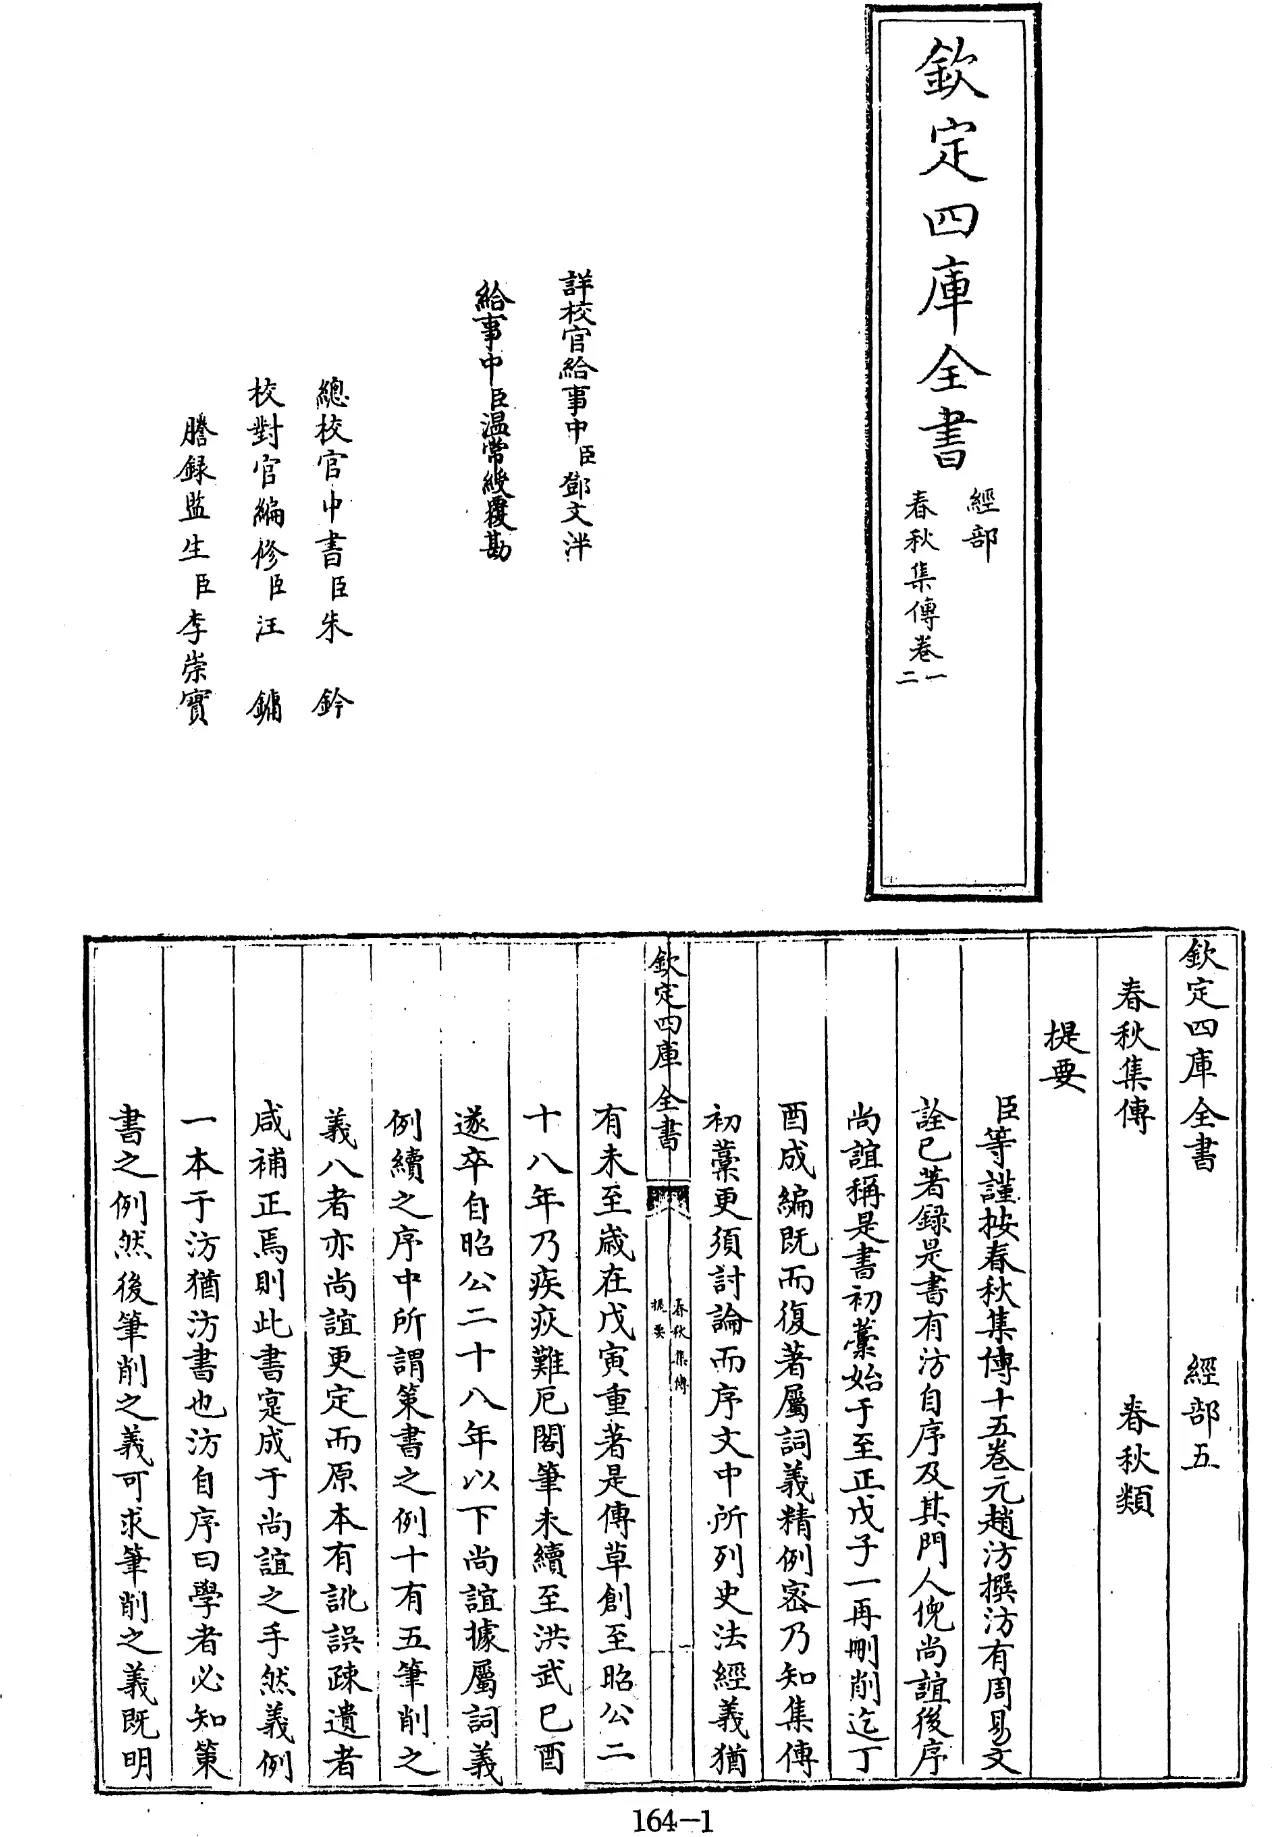 欽定四庫全書
經部
春秋集傳卷一
二
詳校官給事中臣鄧文泮
給事中臣温常綬覆勘
總校官中書臣朱鈐
校對官編修臣汪鏞
謄録監生臣李崇實
欽定四庫全書　經部五
春秋集傳　春秋類
提要
臣等謹按春秋集傳十五卷元趙汸撰汸有周易文
詮已著録是書有汸自序及其門人倪尚誼後序
尚誼稱是書初藁始于至正戊子一再刪削迄丁
酉成編既而復著屬詞義精例密乃知集傳
初藁更須討論而序文中所列史法經義猶
欽定四庫全書
春秋集傳
提要
一
有未至歳在戊寅重著是傳草創至昭公二
十八年乃疾疢難厄閣筆未續至洪武已酉
遂卒自昭公二十八年以下尚誼據屬詞義
例續之序中所謂策書之例十有五筆削之
義八者亦尚誼更定而原本有訛誤疎遺者
咸補正焉則此書寔成于尚誼之手然義例
一本于汸猶汸書也汸自序曰學者必知策
書之例然後筆削之義可求筆削之義既明
164-1